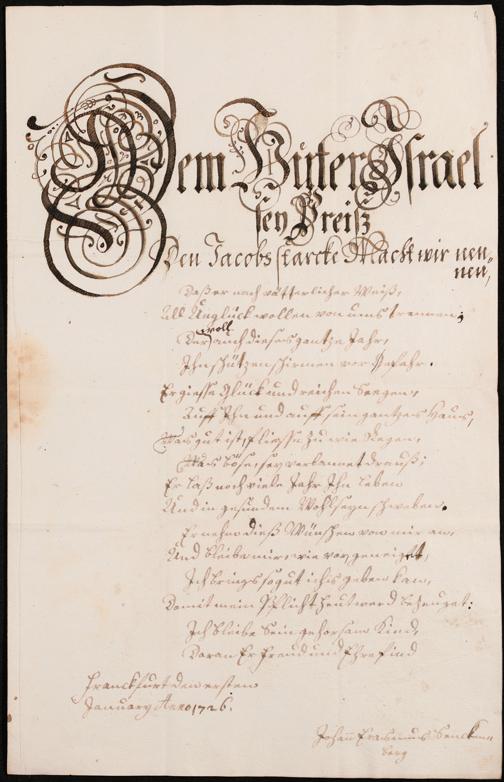 4
Dem Hüter Israel
sey Preiß
Den Jacobs starcke Macht wir nen=
nen,
Daß er nach vätterlicher Weiß,
All Unglück wollen von uns trennen;
Der woll auch dieses gantze Jahr,
Ihn schützen schirmen vor Gefahr.
Er giesse Glück und reichen Seegen,
Auff Ihn und auff sein gantzes Hauß,
Was gut ist, fliesse zu wie Regen,
Was böse, sey verbannet drauß;
Er laß noch viele Jahr Ihn leben
Und in gesundem Wohlseyn schweben.
Er nehm dieß Wünschen von mir an,
Und bleibe mir, wie vor, geneigt,
Ich brings so gut ichs geben kan,
Damit mein Pflicht heut werd bezeuget:
Ich bleibe Sein gehorsam Kind,
Daran Er Freud und Ehre find
Franckfurt den ersten
January Anno 1726.
Johann Erasmus Sencken=
berg